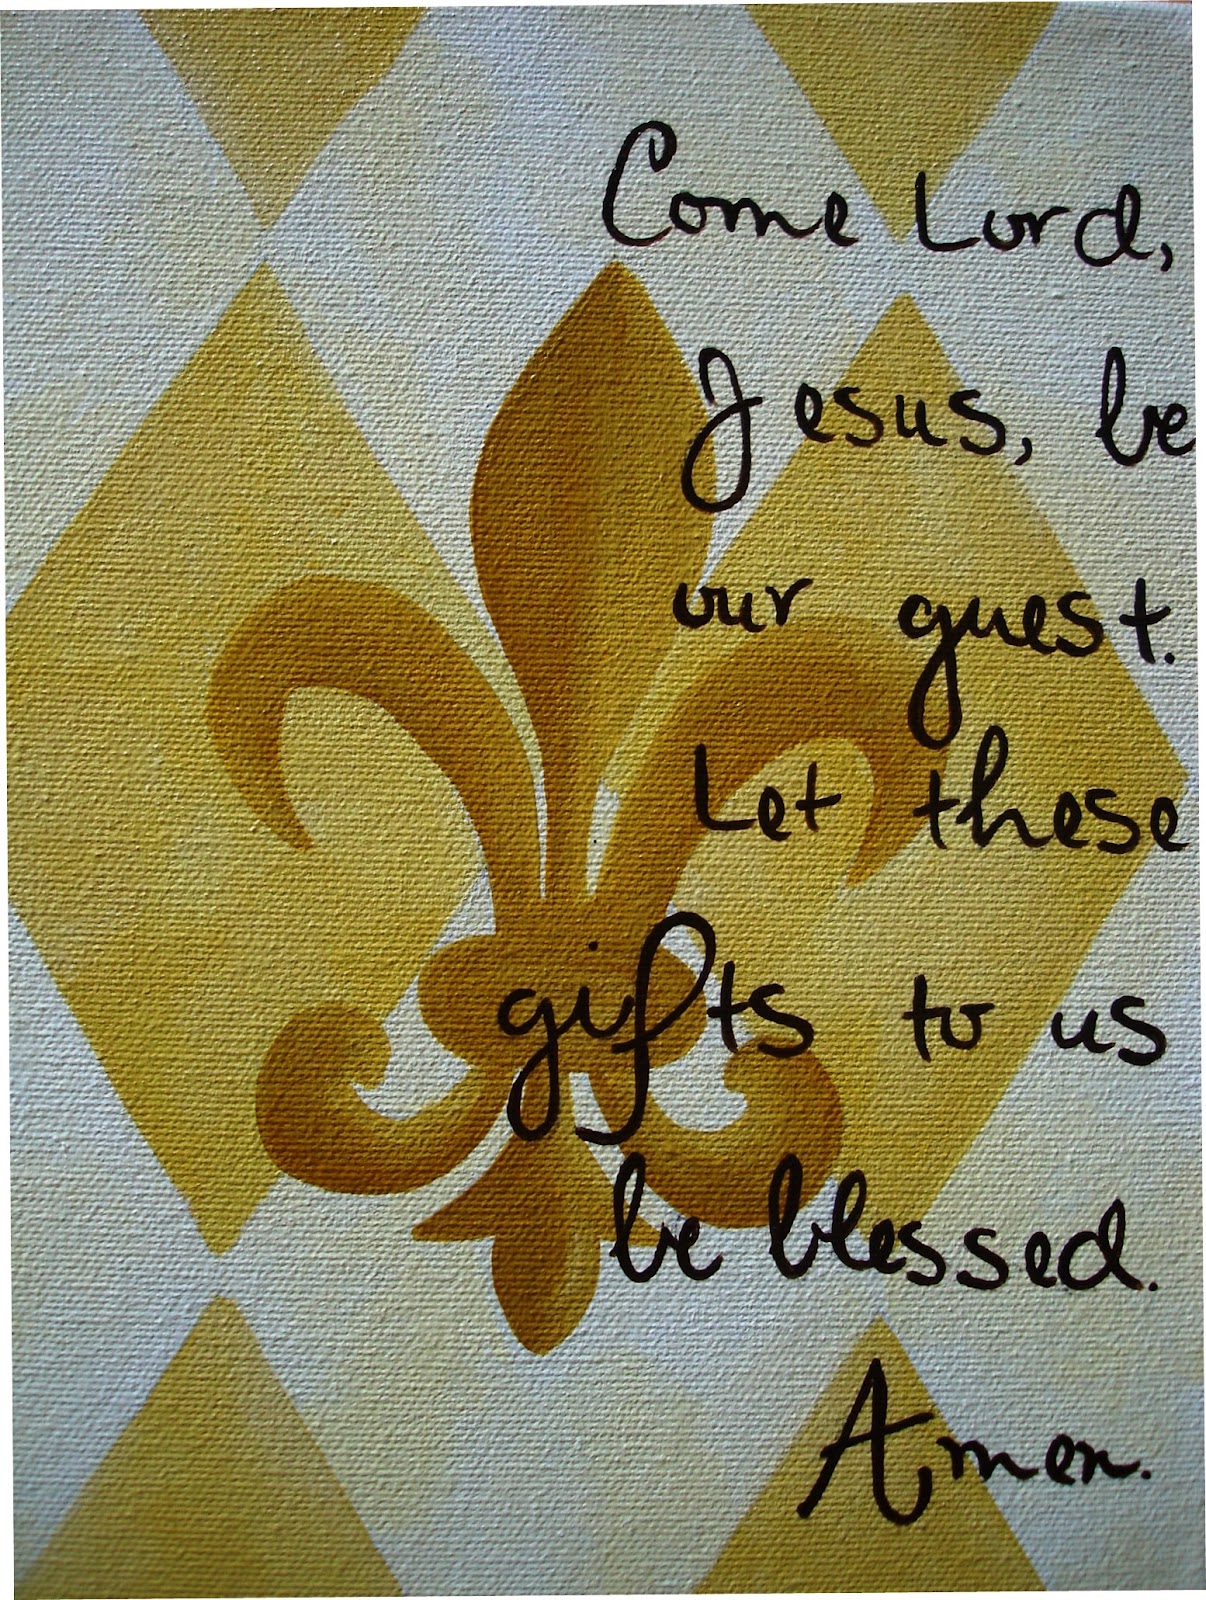 Come Lord,
Jesus, be
our guest.
Let these
gifts to us
be blessed.
Amen.